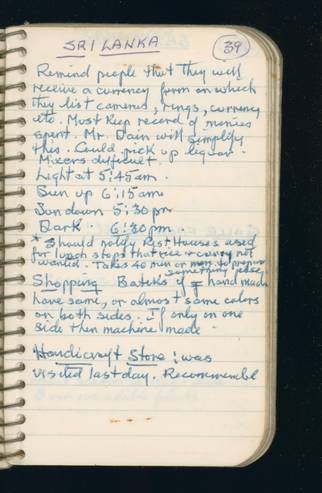 SRI LANKA
39
Remind people that they will
receive a currency form on which
they list cameras, rings, currency
etc. Must keep record of monies
spent. Mr. Dain will simplify
this. Could pick up liquor.
Mixers difficult.
Light at 5:45 am.
Sun up 6:15 am
Sundown 5:30 pm
Dark - 6:30 pm
* Should notify Rest Houses used
for lunch stops that rice & curry not
wanted. Takes 40 min or more to prepare
something else.
Shopping Batiks if hand made
have same, or almost same colors
on both sides. If only on one
side then machine made.
Handicraft Store: was
visited last day. Recommend